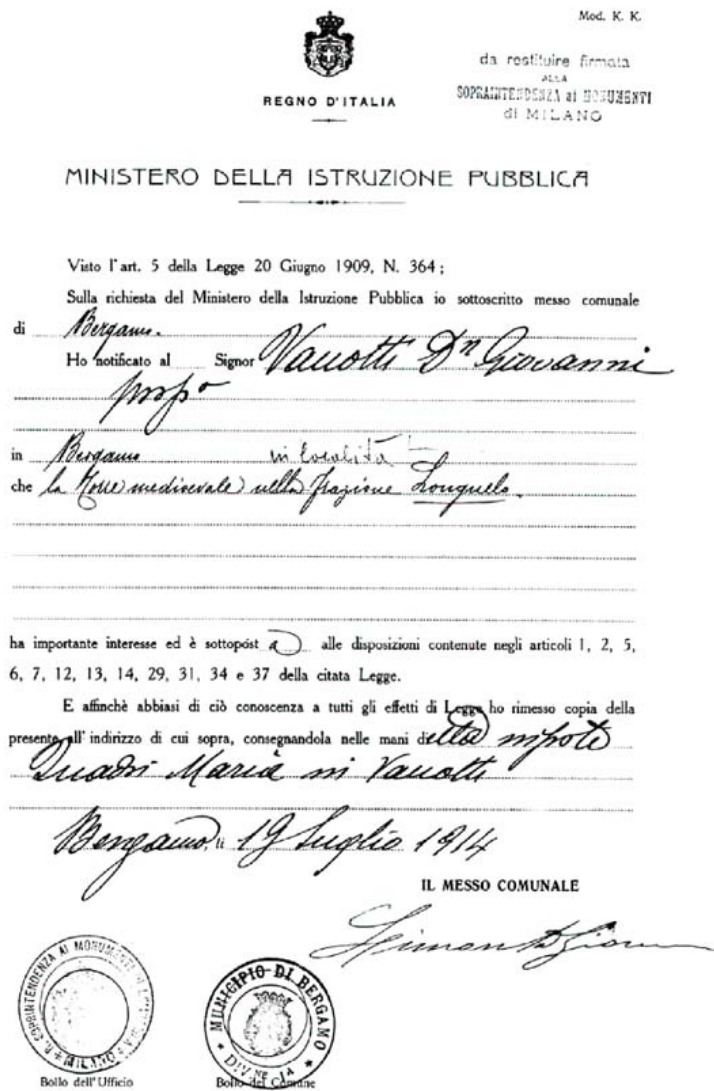 Mod. K. K.
da restituire firmata
ALLA
SOPRAINTENDENZA ai MONUMENTI
di MILANO
REGNO D'ITALIA
MINISTERO DELLA ISTRUZIONE PUBBLICA
Visto l'art. 5 della Legge 20 Giugno 1909, N. 364;
Sulla richiesta del Ministero della Istruzione Pubblica io sottoscritto messo comunale
di Bergamo.
Ho notificato al Signor Vanotti Dn Giovanni
in Bergamo in località
che la Torre medioevale nella frazione Longuelo.
ha importante interesse ed è sottopost a alle disposizioni contenute negli articoli 1, 2, 5,
6, 7, 12, 13, 14, 29, 31, 34 e 37 della citata Legge.
E affinchè abbiasi di ciò conoscenza a tutti gli effetti di Legge ho rimesso copia della
presente all'indirizzo di cui sopra, consegnandola nelle mani della nipote
Quadri Maria in Vanotti
Bergamo, li 19 Luglio 1914
IL MESSO COMUNALE
R. SOPRINTENDENZA AI MONUMENTI MILANO
MUNICIPIO DI BERGAMO
DIV.NE 1A
Bollo dell'Ufficio
Bollo del Comune